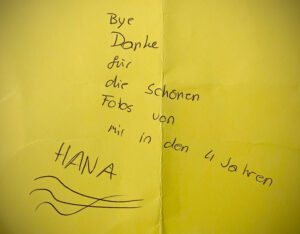 Bye
Danke
für
die schönen
Fotos von
mir in den 4 Jahren
HANA